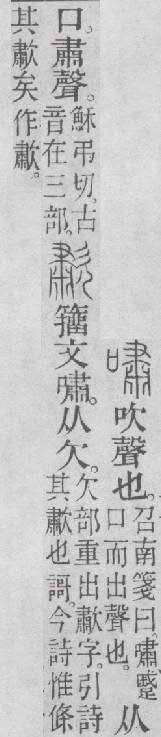 嘯吹聲也。召南箋曰嘯蹙口而出聲也。从
口。肅聲。穌弔切。古音在三部。歗籒文嘯。从欠。欠部重出歗字。引詩其歗也謌。今詩惟條
其歗矣作歗。